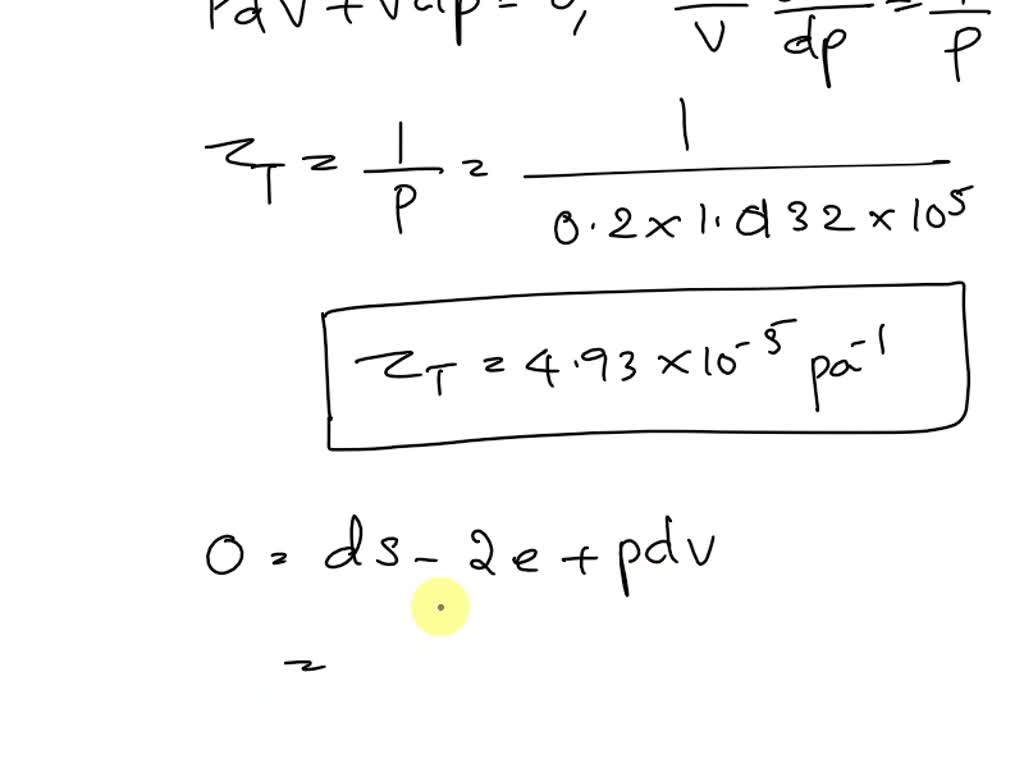 PdV + Vdp = 0, V dp = 1/P
τ_T = 1/P = 1/(0.2 × 1.0132 × 10^5)
τ_T = 4.93 × 10^-5 pa^-1
0 = ds - 2e + pdv
=